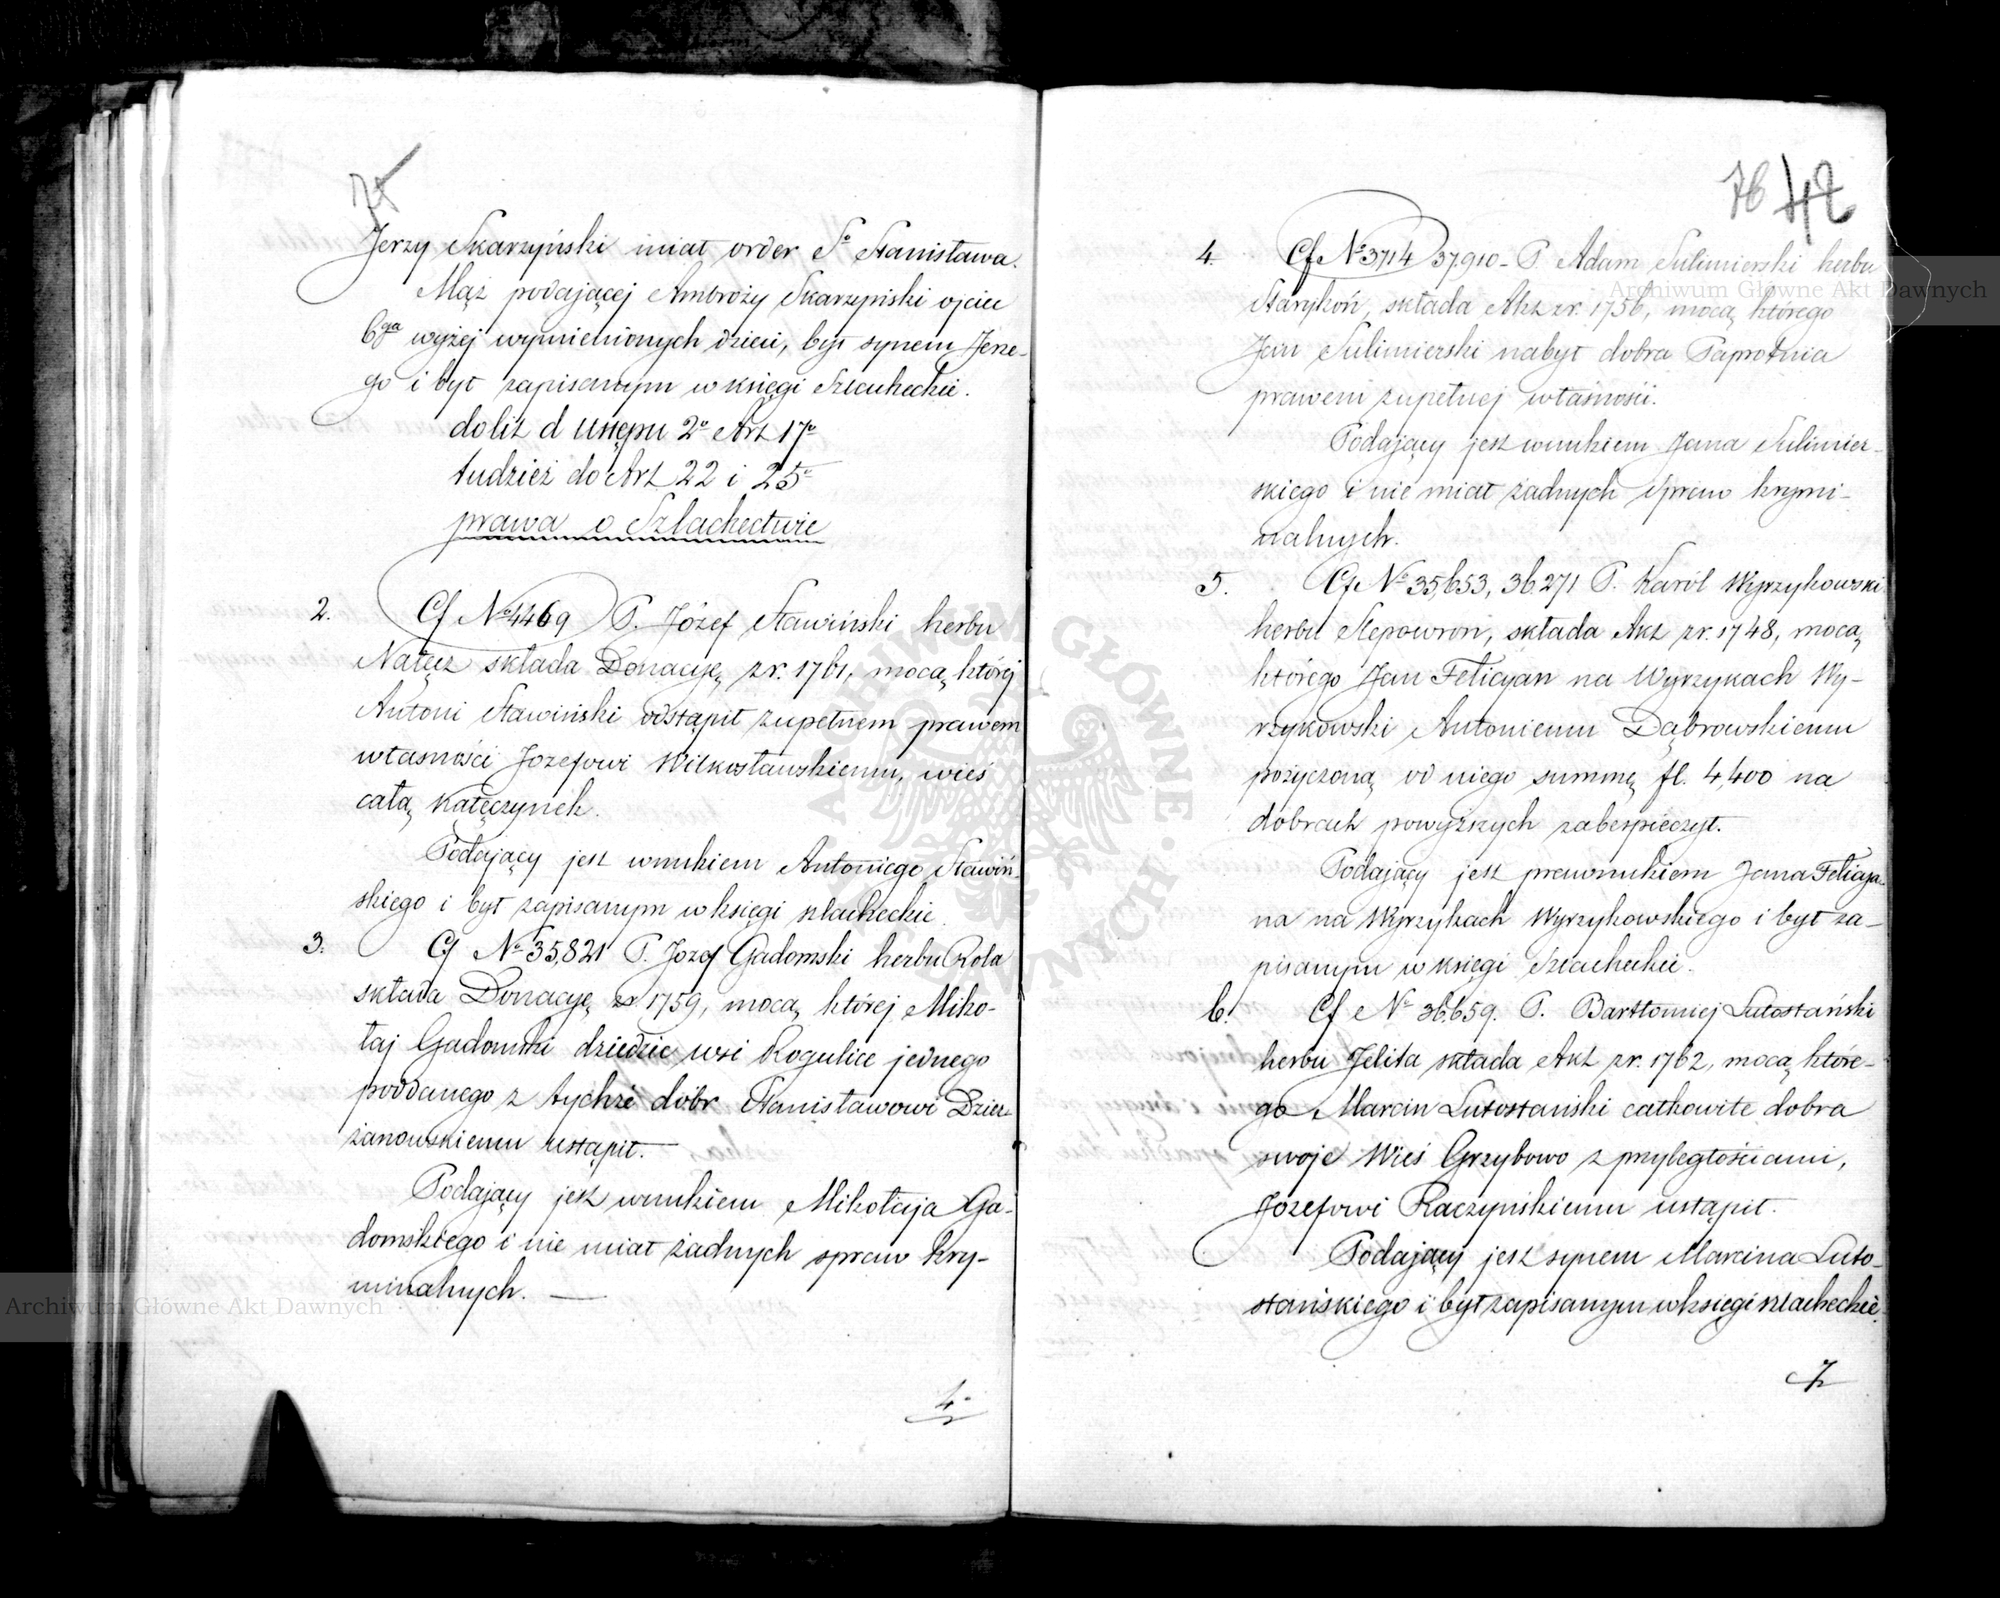 75
Jerzy Skarzyński miał order Sº Stanisława.
Mąż podającej Ambroży Skarzyński ojciec
6ga wyżej wymienionych dzieci, był synem Jerze-
go i był zapisanym w księgi Szlacheckie.
dolit d Ustępu 2º Art 17º
tudzież do Art 22 i 25º
prawa o Szlachectwie
2. Cf Nº 4469 P. Józef Sławiński herbu
Nałęcz składa Donacyę z r. 1761, mocą której
Antoni Sławiński odstąpił zupełnem prawem
własności Jozefowi Wilkosławskiemu, wieś
całą Kałęczynek.
Podający jest wnukiem Antoniego Sławiń-
skiego i był zapisanym w księgi szlacheckie.
3. Cf Nº 35,821 P. Jozef Gadomski herbu Rola
składa Donacyę z r 1759, mocą której Miko-
łaj Gadomski dziedzic wsi Rogulice jednego
poddanego z tychże dóbr Stanisławowi Dzier-
żanowskiemu ustąpił.—
Podający jest wnukiem Mikołaja Ga-
domskiego i nie miał żadnych spraw kry-
minalnych. —
4º
76 42
4. Cf Nº 3714 37.910 – P. Adam Sulimierski herbu
Starykoń, składa Akt z r. 1756, mocą którego
Jan Sulimierski nabył dobra Paprotnia
prawem zupełnej własności.
Podający jest wnukiem Jana Sulimier-
skiego i nie miał żadnych spraw krymi-
nalnych.
5. Cf Nº 35,653, 36.271 P. Karól Wyrzykowski
herbu Slepowron, składa Akt z r. 1748, mocą
którego Jan Felicyan na Wyrzykach Wy-
rzykowski Antoniemu Dąbrowskiemu
pożyczoną od niego summę fl. 4,400 na
dobrach powyższych zabespieczył.
Podający jest prawnukiem Jana Felicya-
na na Wyrzykach Wyrzykowskiego i był za-
pisanym w księgi Szlacheckie.
6. Cf Nº 36.659. P. Bartłomiej Lutostański
herbu Jelita składa Akt z r. 1762, mocą które-
go Marcin Lutostański całkowite dobra
swoje Wieś Grzybowo z przyległościami,
Józefowi Raczyńskiemu ustąpił.
Podający jest synem Marcina Luto-
stańskiego i był zapisanym w księgi szlacheckie.
7
Archiwum Główne Akt Dawnych
Archiwum Główne Akt Dawnych
ARCHIWUM GŁÓWNE AKT DAWNYCH